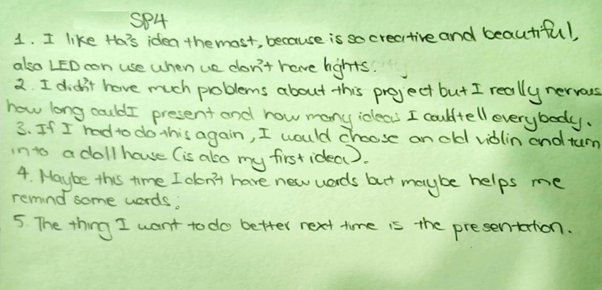 SP4
1. I like Ha's idea the most, because is so creative and beautiful,
also LED can use when we don't have lights.
2. I didn't have much problems about this project but I really nervous
how long could I present and how many ideas I could tell everybody.
3. If I had to do this again, I would choose an old violin and turn
into a doll house (is also my first idea).
4. Maybe this time I don't have new words but maybe helps me
remind some words;
5. The thing I want to do better next time is the presentation.